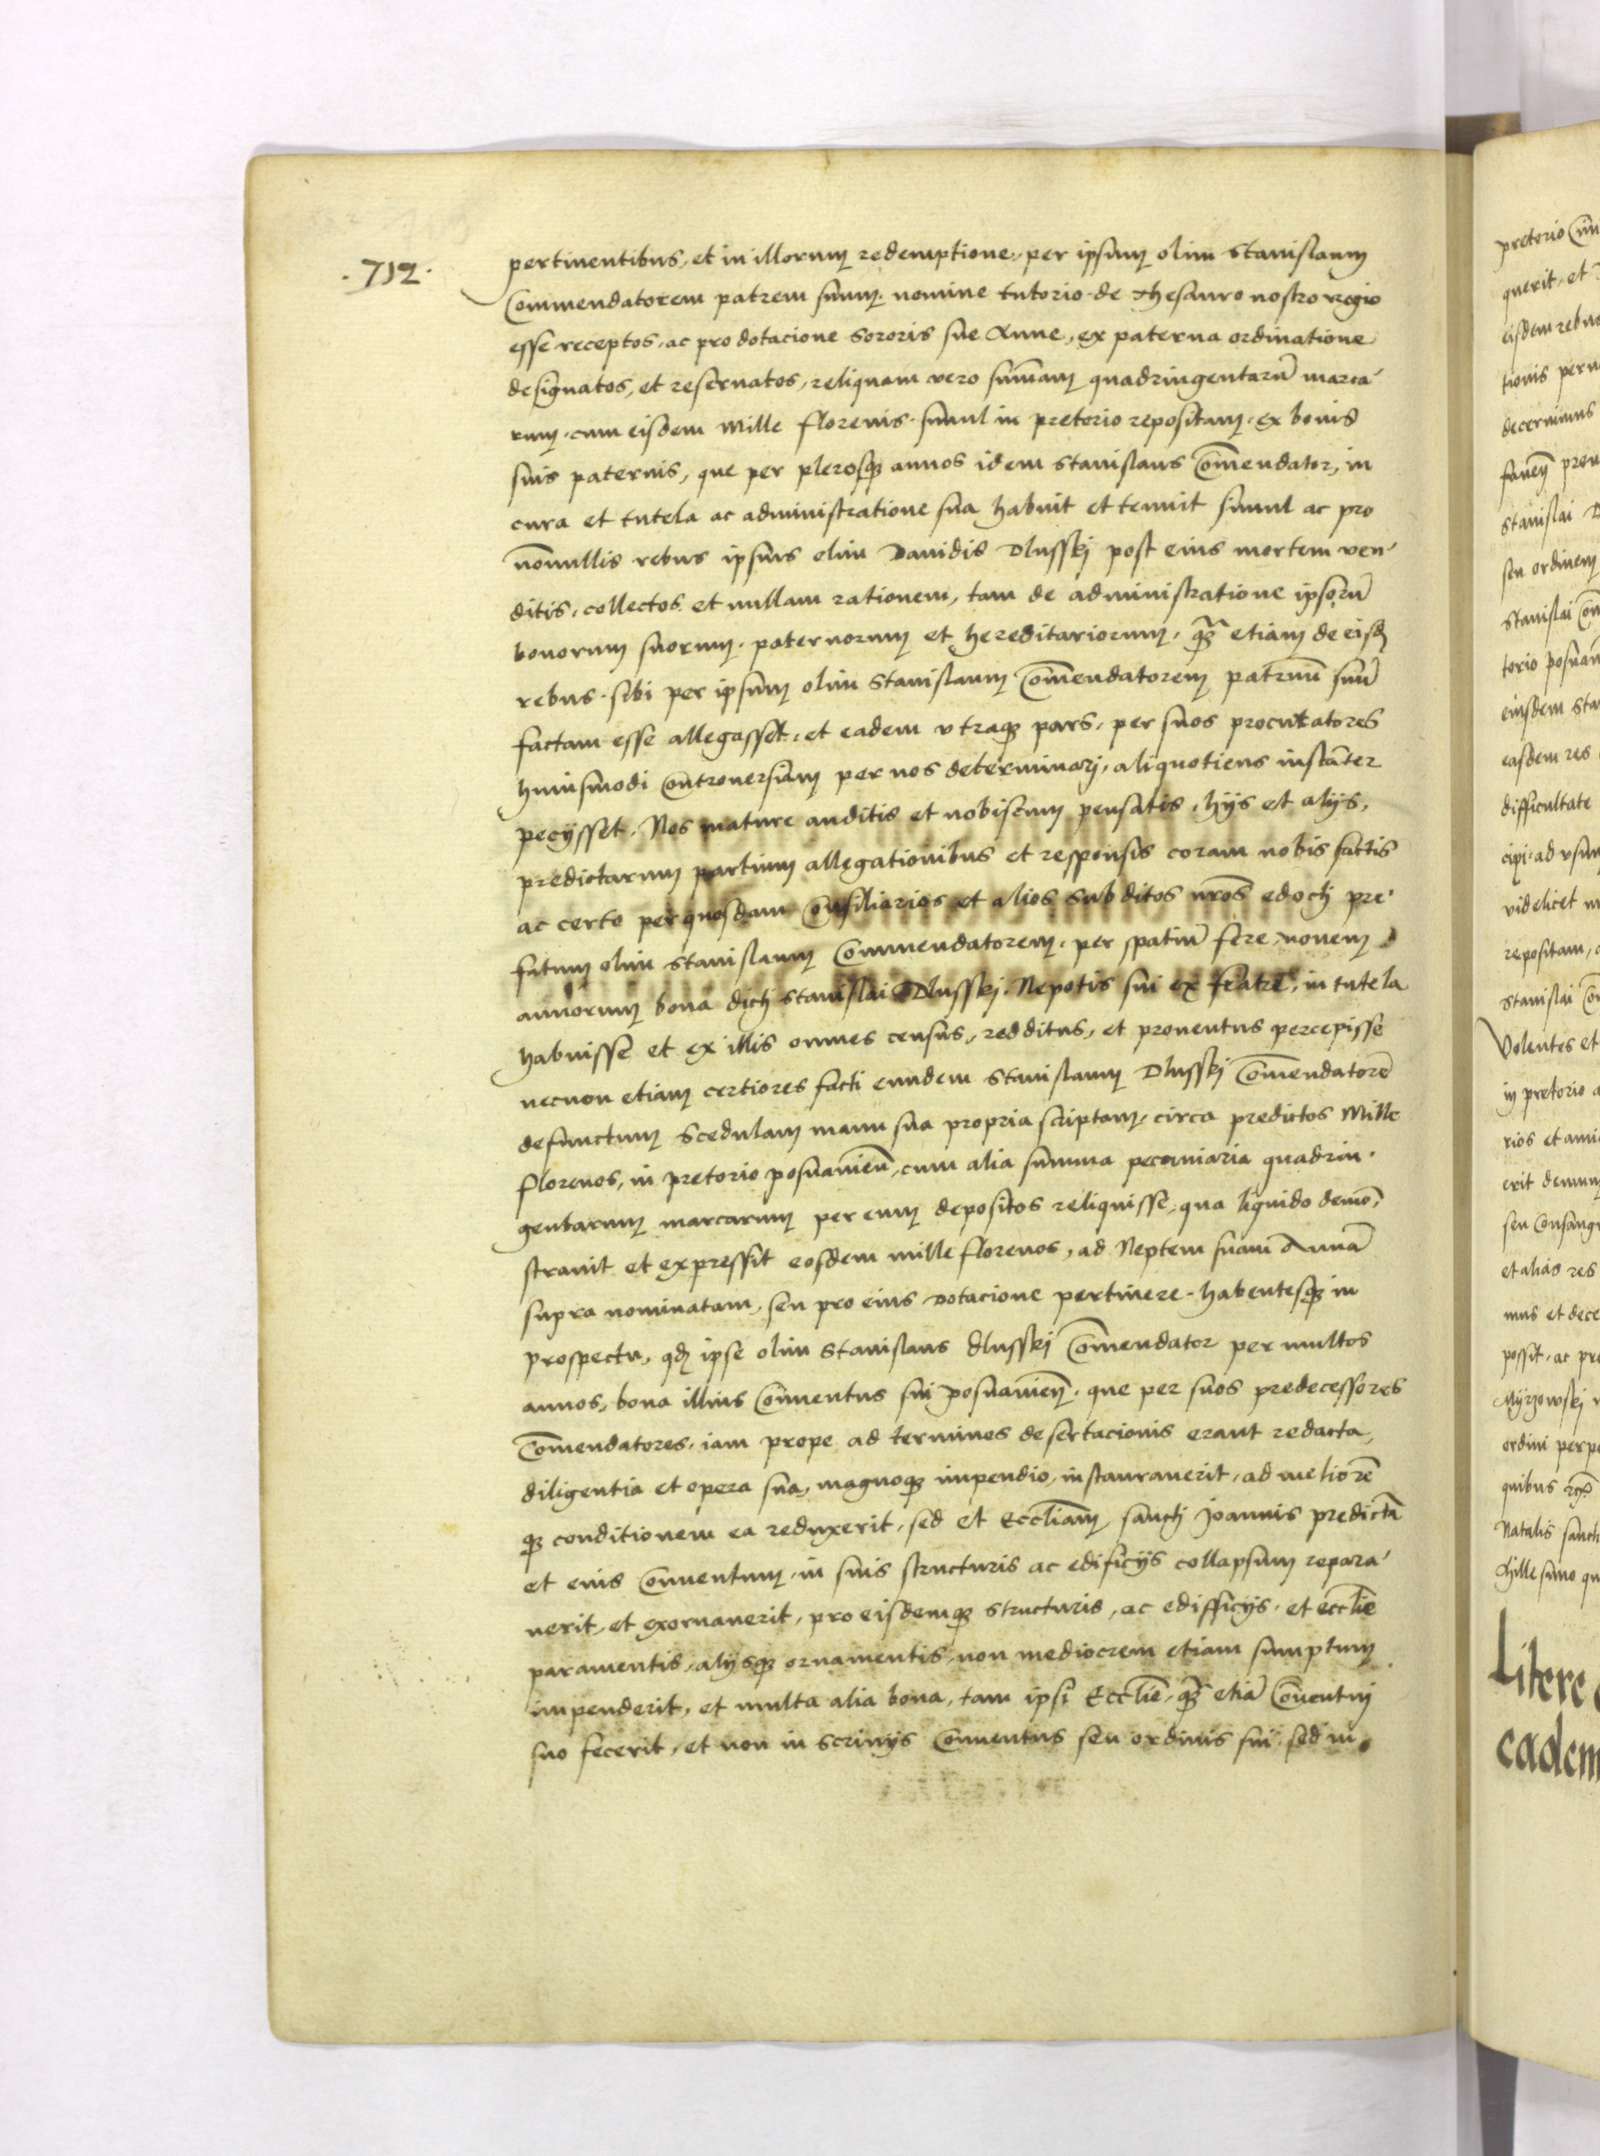 ·712·
pertinentibus, et in illorum redemptione, per ipsum olim Stanislaum
Commendatorem patrem suum, nomine tutorio de thesauro nostro regio
esse receptos, ac pro dotacione sororis sue Anne, ex paterna ordinatione
designatos, et reseruatos, reliquam vero sum̄am quadringentarū marca-
rum, cum eisdem Mille florenis, simul in pretorio repositam, ex bonis
suis paternis, que per plerosq3 annos idem Stanislaus Com̄endator, in
cura et tutela ac administratione sua habuit et tenuit simul ac pro
nōnullis rebus ipsius olim Dauidis Dlusskj post eius mortem ven-
ditis, collectos, et nullam rationem, tam de administratione ipsorū
bonorum suorum, paternorum et hereditariorum, q3̄ etiam de eisd
rebus, sibi per ipsum olim Stanislaum Com̄endatorem patruū suū
factam esse allegasset, et eadem vtraq3 pars, per suos procuratores
huiusmodi Controuersiam per nos determinarj, aliquotiens instāter
pecysset. Nos mature auditis et nobiscum pensatis, hijs et alijs,
predictarum partium allegationibus et responsis coram nobis factis
ac certo per quosdam Consiliarios et alios subditos nr̄os edoctj pre-
fatum olim Stanislaum Commendatorem, per spatiū fere, nouem
annorum bona dictj Stanislai Dlusskj, Nepotis sui ex fratre, in tutela
habuisse et ex illis omnes census, redditus, et prouentus percepisse
necnon etiam certiores facti eundem Stanislaum Dlusskj Com̄endatorē
defunctum Scedulam manu sua propria scriptam, circa predictos Mille
florenos, in pretorio posnanieñ, cum alia summa pecuniaria quadrin-
gentarum marcarum per eum depositos reliquisse, qua liquido demō-
strauit et expressit eosdem mille florenos, ad Neptem suam Annā
supra nominatam, seu pro eius Dotacione pertinere, habentesq3 in
prospectu, qd ipse olim Stanislaus Dlusskj Com̄endator per multos
annos, bona illius Conuentus sui posnanieñ, que per suos predecessores
Com̄endatores, iam prope ad terminos desertacionis erant redacta,
diligentia et opera sua, magnoq3 impendio, instaurauerit, ad meliorē
q3 conditionem ea reduxerit, sed et Eccl̄iam sanctj Joannis predictā
et eius Conuentum, in suis structuris ac edificijs collapsum repara-
uerit, et exornauerit, pro eisdemq3 structuris, ac edifficijs, et eccl̄ie
paramentis, alijsq3 ornamentis, non mediocrem etiam sumptum
impenderit, et multa alia bona, tam ipsi Eccl̄ie, q3̄ etiā Cōuentuj
suo fecerit, et non in scrinijs Conuentus seu ordinis sui, sed in
pretorio
querit, et
eisdem rebus
tionis
decernimus
Stanislai
seu ordinem
Stanislai
torio
eiusdem
easdem res
difficultate
videlicet
repositam,
Stanislai
Volentes et
in pretorio
rios et
erit
et alias res
mus et
possit, ac
ordini
quibus
Natalis
Litere
eadem